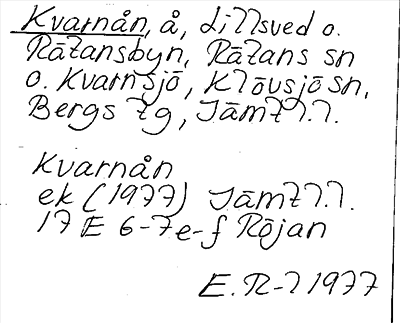 Kvarnån, å, Lillsved o.
Rätansbyn, Rätans sn
o. Kvarnsjö, Klövsjö sn,
Bergs tg, Jämtl.l.
Kvarnån
ek (1977) Jämtl.l.
17 E 6-7e-f Röjan
E.R-l 1977